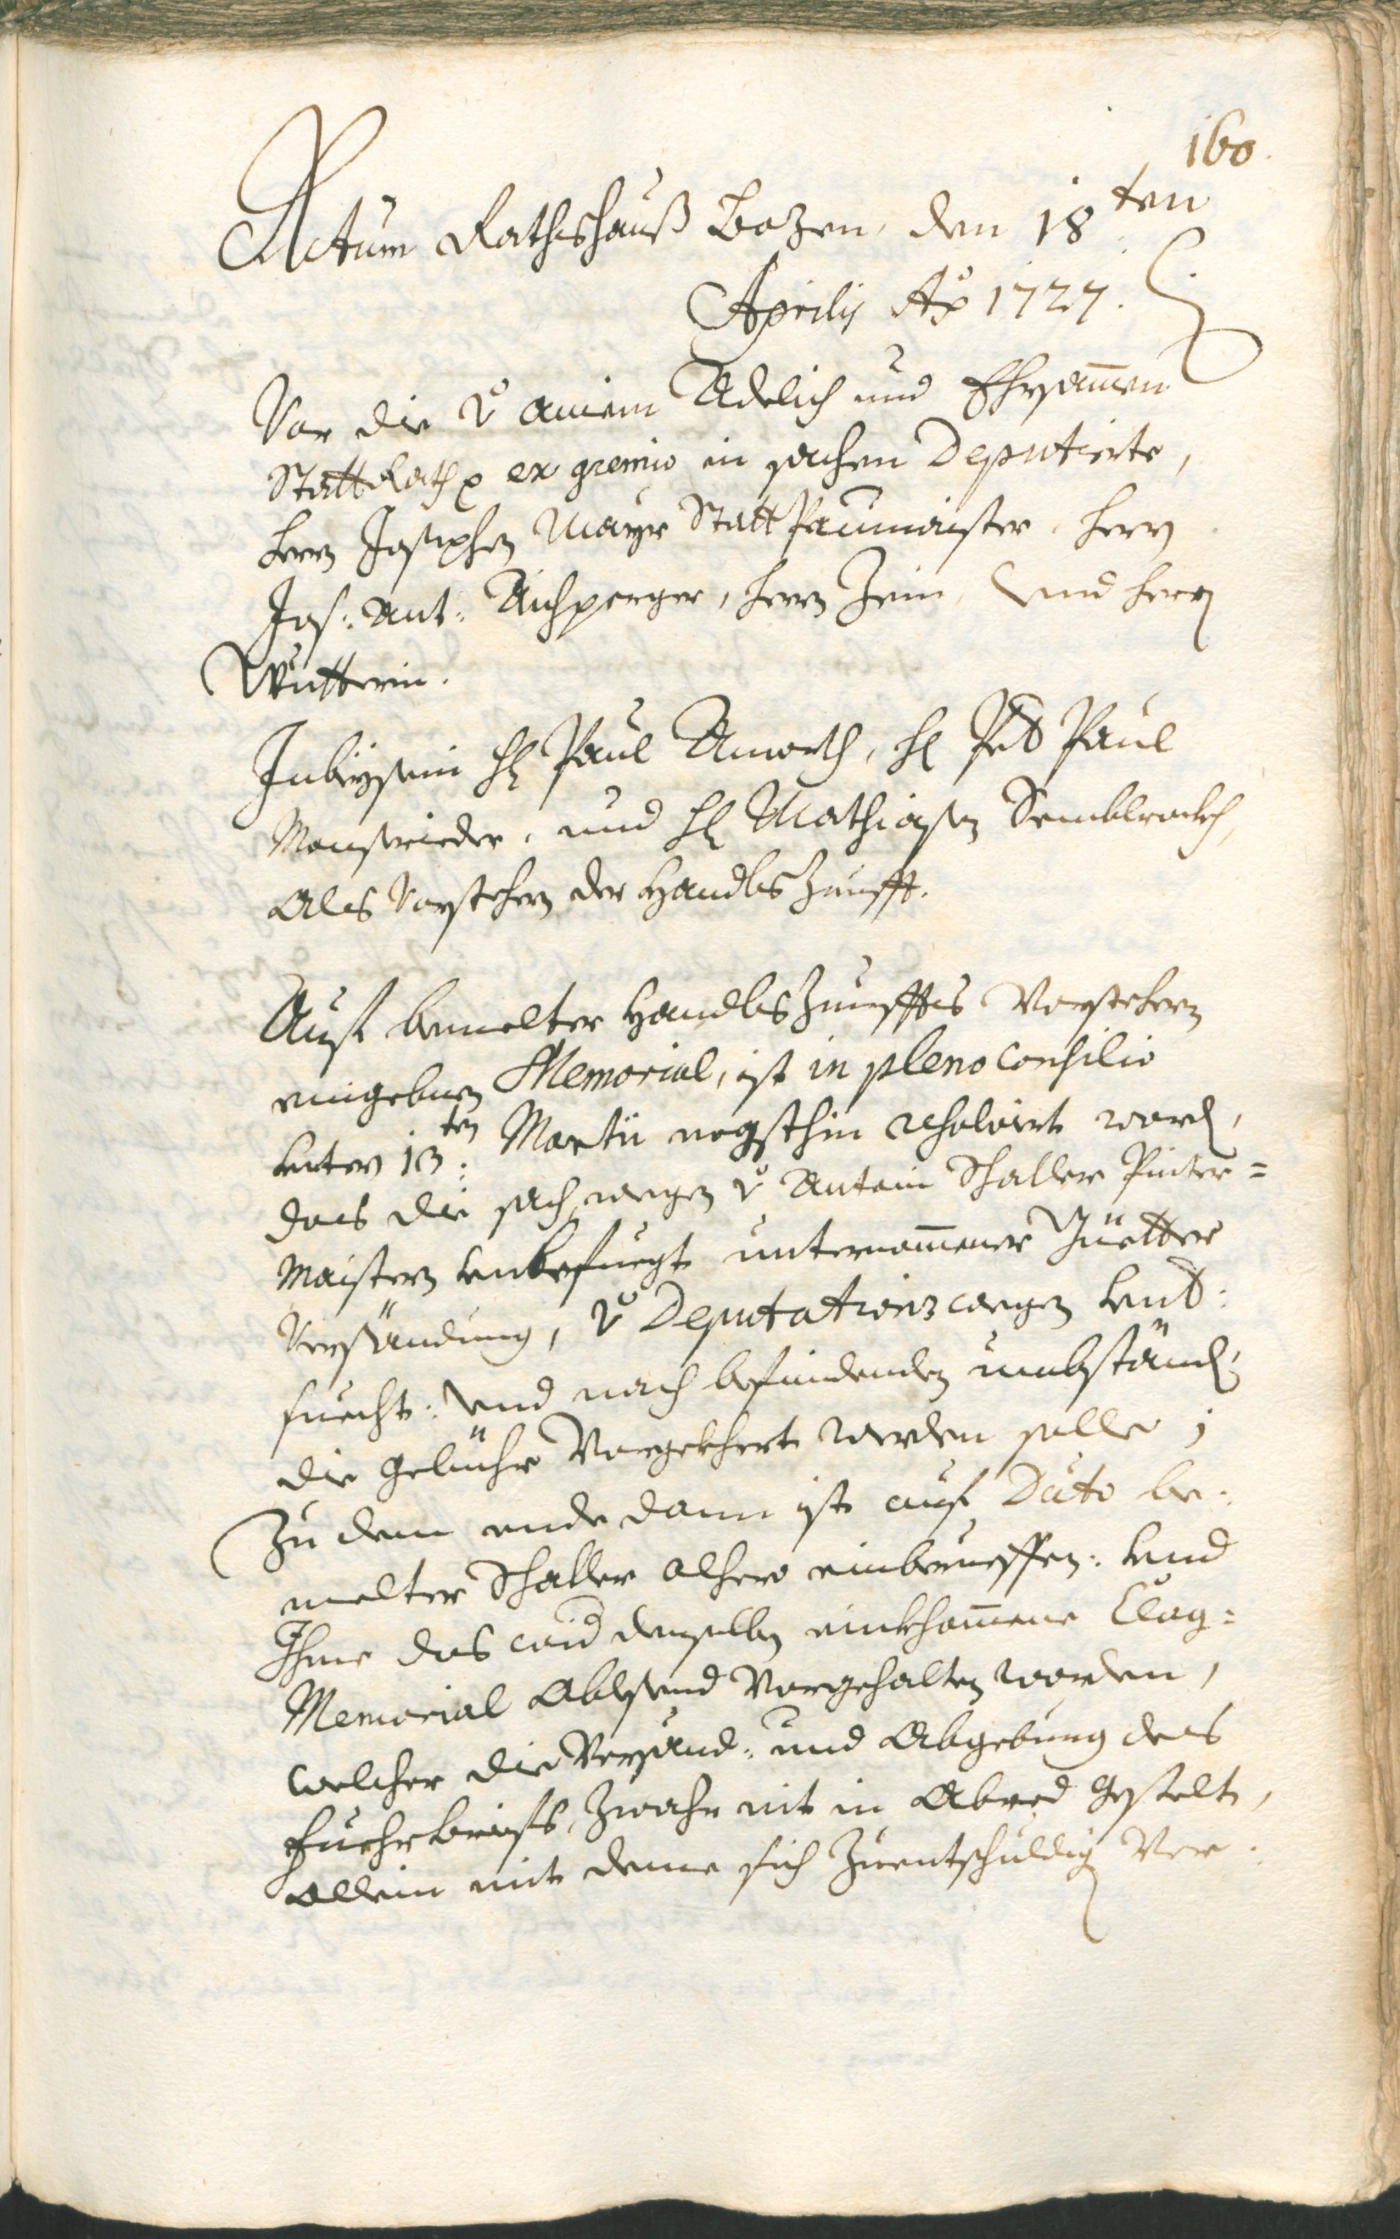 160.
Actum Rathshauß Bozen, den 18ten
Aprilis Ao 1727.
Vor die v ainem Adelich und Ehrsammen
StattRath p ex gremio in sachen Deputierte,
herrn Josephen Mayr Statt Paumaister, herrn
Jos: Ant: Aichperger, herrn Zein, Und herrn
Wutterin.
In beysein H: Paul Amorth, H: Pet Paul
Menserieder, und H: Mathiasen Semblrockh,
Als Vorstehern der Handls Zunfft.
Auf bemelter Handls Zunffts Vorstehern
eingebnen Memorial, ist in pleno Consilio
Unter 13:ten Martii negsthin resolvirt word,
das die sach wegen v Antoni Schaller Pinter=
Maistern unbefuegt unternommener Güetter
Versändung, v Deputations wegen Unt:
suecht: Und nach befindenden umbständ:
die gebühr Vorgekhert werden solle;
Zu dem ende dann ist auf Dato be:
melter Schaller alhero einberueffen: Und
Ihme das wid denselben einkhommene Clag=
Memorial Ablesend Vorgehalten worden,
welcher die Versand: und Abgebung des
Fuehrbriefs, Zwahr nit in Abred gestelt,
Allein mit deme sich Zuentschuldig Ver: